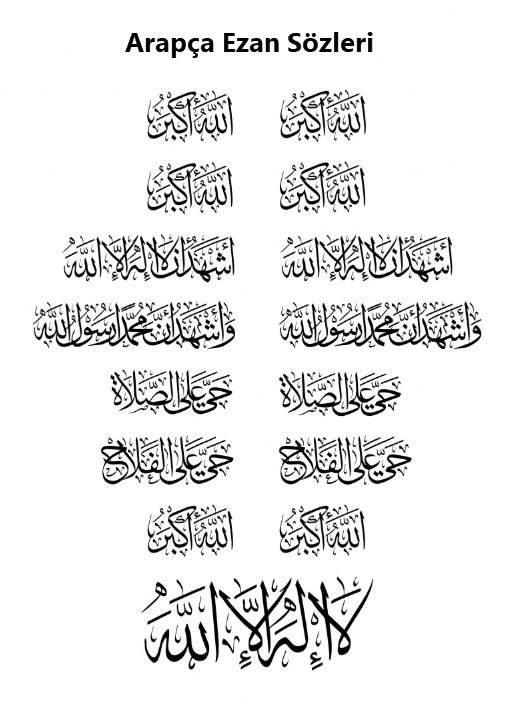 Arapça Ezan Sözleri
اللَّهُ أَكْبَرُ اللَّهُ أَكْبَرُ
اللَّهُ أَكْبَرُ اللَّهُ أَكْبَرُ
أَشْهَدُ أَنْ لَا إِلَهَ إِلَّا اللَّهُ أَشْهَدُ أَنْ لَا إِلَهَ إِلَّا اللَّهُ
وَأَشْهَدُ أَنَّ مُحَمَّدًا رَسُولُ اللَّهِ وَأَشْهَدُ أَنَّ مُحَمَّدًا رَسُولُ اللَّهِ
حَيَّ عَلَى الصَّلَاةِ حَيَّ عَلَى الصَّلَاةِ
حَيَّ عَلَى الْفَلَاحِ حَيَّ عَلَى الْفَلَاحِ
اللَّهُ أَكْبَرُ اللَّهُ أَكْبَرُ
لَا إِلَهَ إِلَّا اللَّهُ